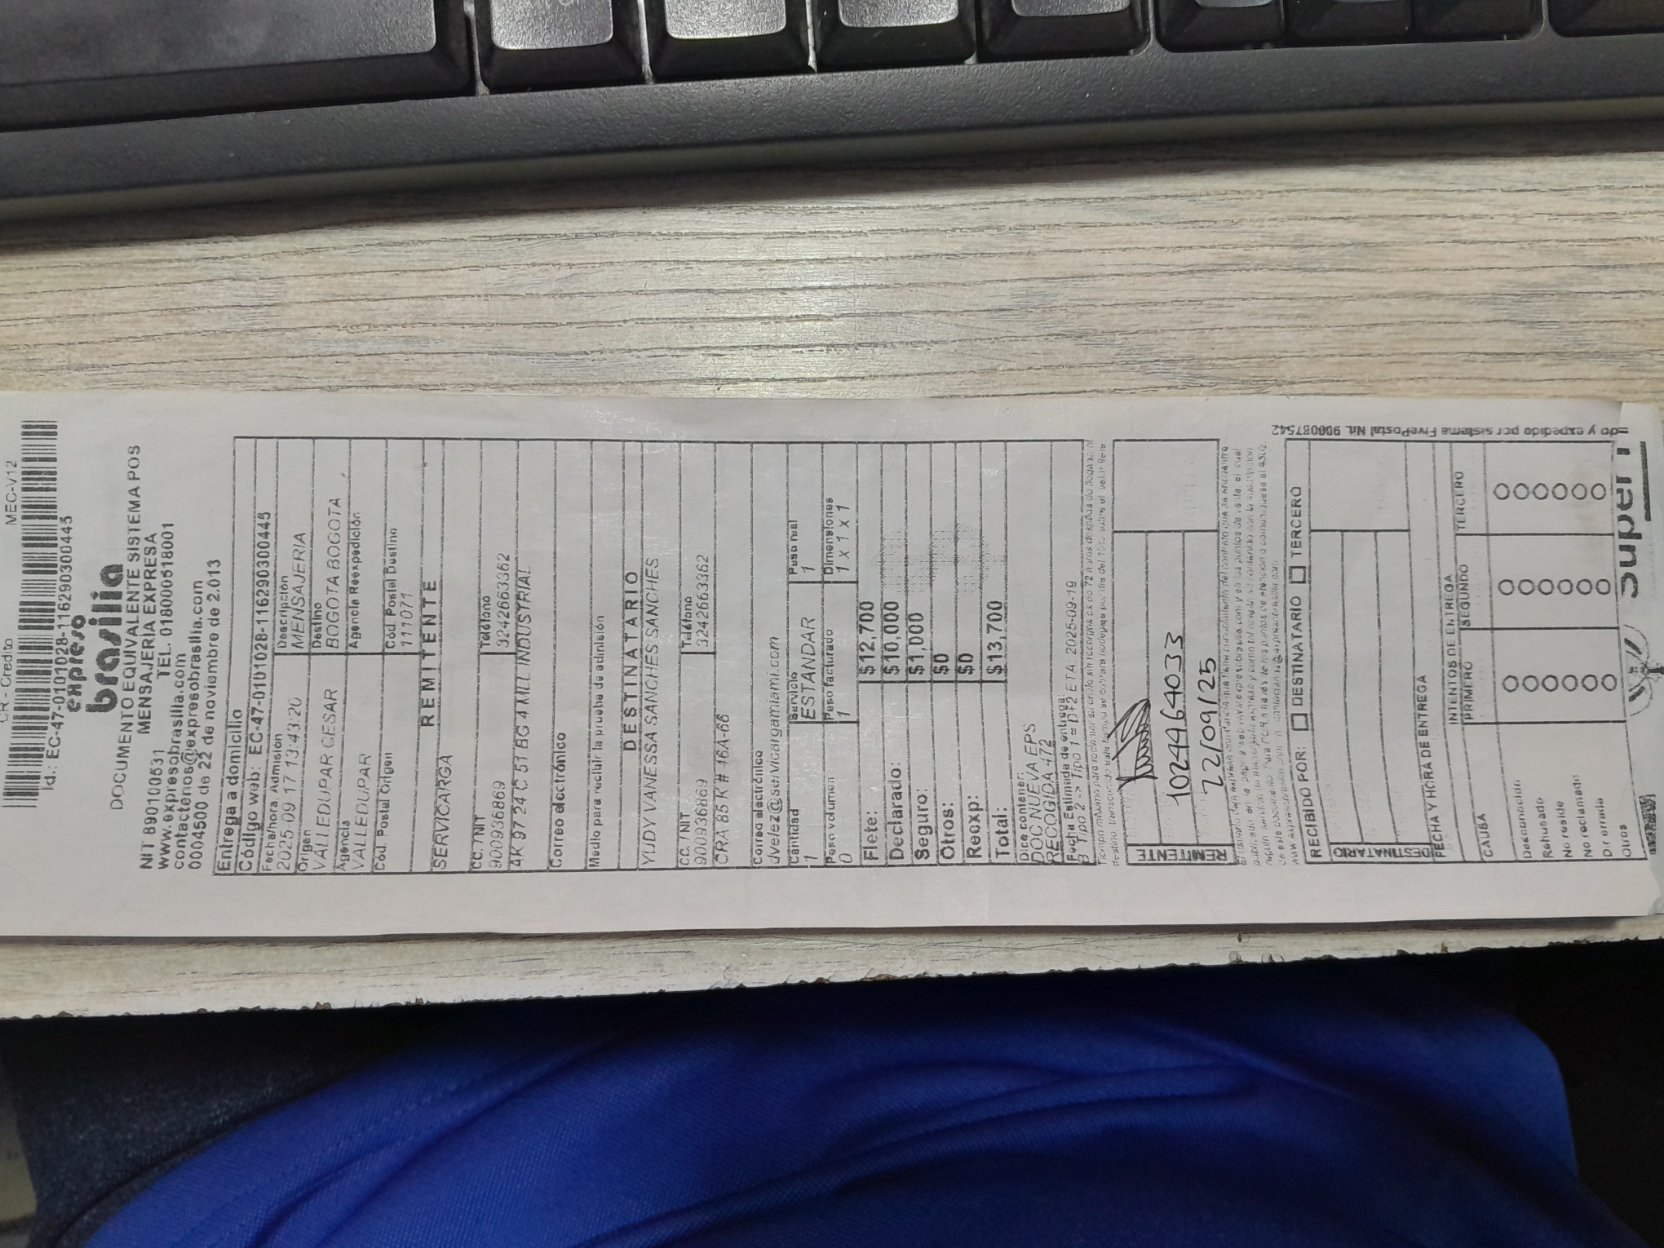 CR - Credito MEC-V12
Id.: EC-47-0101028-116290300445
expreso
brasilia
DOCUMENTO EQUIVALENTE SISTEMA POS
MENSAJERIA EXPRESA
NIT 890100531 TEL. 018000518001
www.expresobrasilia.com
contactenos@expresobrasilia.com
0004500 de 22 de noviembre de 2.013
Entrega a domicilio
Código web: EC-47-0101028-116290300445
Fecha/hora Admisión Descripción
2025 09 17 13:43:20 MENSAJERIA
Origen Destino
VALLEDUPAR CESAR BOGOTA BOGOTA
Agencia Agencia Reexpedición
VALLEDUPAR
Cód. Postal Origen Cód Postal Destino
111071
REMITENTE
SERVICARGA
CC. / NIT Teléfono
900936869 3242663362
AK 97 24 C 51 BG 4 ALL INDUSTRIAL
Correo electrónico
Medio para recibir la prueba de admisión
DESTINATARIO
YUDY VANESSA SANCHES SANCHES
CC. / NIT Teléfono
900936869 3242663362
CRA 85 K # 46A-66
Correo electrónico
dvelez@servicargamiami.com
Cantidad Servicio Peso real
1 ESTANDAR 1
Peso volumen Peso facturado Dimensiones
0 1 1 X 1 X 1
Flete: $12,700
Declarado: $10,000
Seguro: $1,000
Otros: $0
Reexp: $0
Total: $13,700
Dice contener:
DOC NUEVA EPS
RECOGIDA 472
Fecha Estimada de entrega
ETA. 2025-09-19
REMITENTE
1024464033
22/09/25
RECIBIDO POR: DESTINATARIO TERCERO
DESTINATARIO
FECHA Y HORA DE ENTREGA
INTENTOS DE ENTREGA
CAUSA PRIMERO SEGUNDO TERCERO
Desconocido
Rehusado
No reside
No reclamado
Dir errada
Otros
do y expedido por sistema FivePostal Nit. 900087542